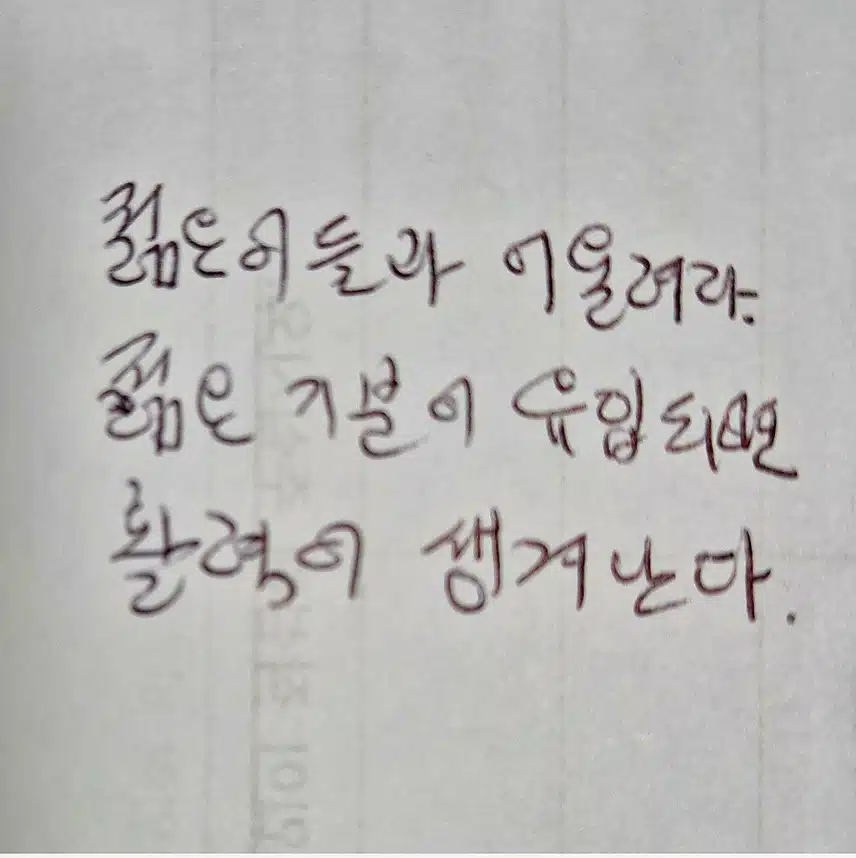 젊은이들과 어울려라.
젊은 기분이 유입되면
활력이 생겨난다.